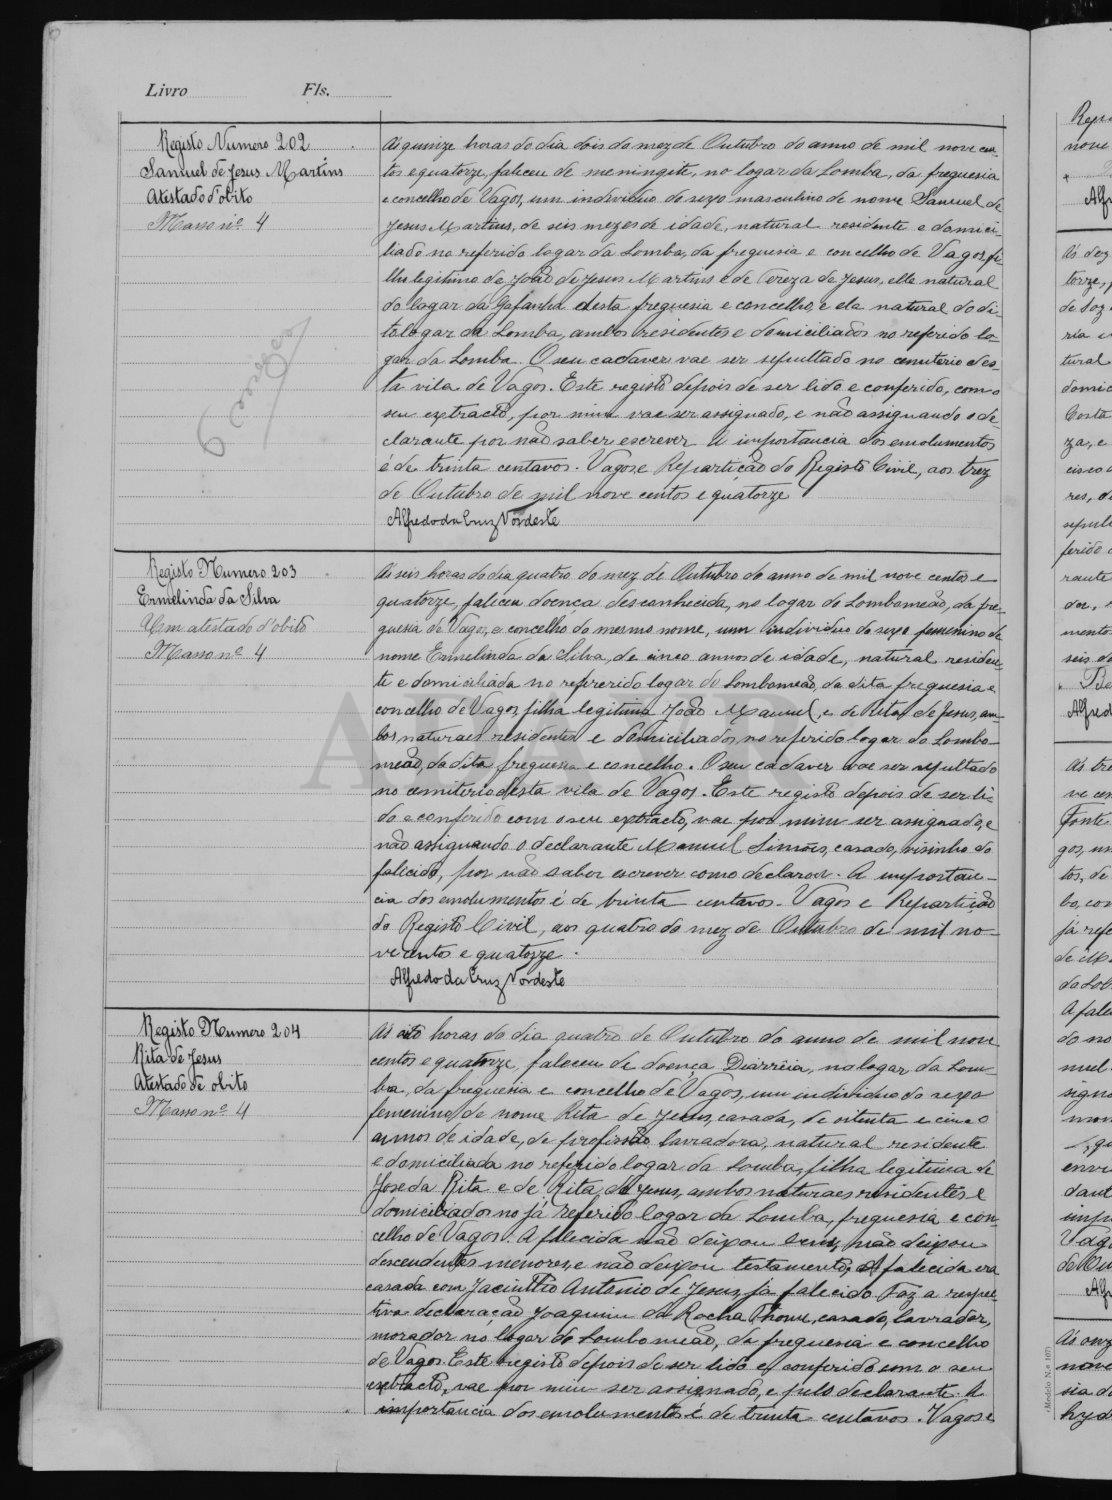 Livro Fls.
Registo Numero 202
Samuel de Jesus Martins
Atestado d'obito
Masso nº 4
6 mezes
Ás quinze horas do dia dois do mez de Outubro do anno de mil nove cen-
tos e quatorze, faleceu de meningite, no logar da Lomba, da freguesia
e concelho de Vagos, um individuo do sexo masculino de nome Samuel de
Jesus Martins, de seis mezes de idade, natural residente e domici-
liado no referido logar da Lomba, da freguesia e concelho de Vagos, fi-
lho legitimo de João de Jesus Martins e de Tereza de Jesus, elle natural
do logar da Gafanha desta freguesia e concelho, e ela natural do di-
to logar da Lomba, ambos residentes e domiciliados no referido lo-
gar da Lomba. O seu cadaver vae ser sepultado no cemiterio des-
ta vila de Vagos. Este registo depois de ser lido e conferido, com o
seu extracto, por mim vae ser assignado, e não assignando o de-
clarante por não saber escrever. A importancia dos emolumentos
é de trinta centavos. Vagos e Repartição do Registo Civil, aos trez
de Outubro de mil nove centos e quatorze
Alfredo da Cruz Nordeste
Registo Numero 203
Ermelinda da Silva
Um atestado d'obito
Masso nº 4
Ás seis horas do dia quatro do mez de Outubro do anno de mil nove centos e
quatorze, faleceu doença desconhecida, no logar do Lombomeão, da fre-
guesia de Vagos, e concelho do mesmo nome, um individuo do sexo femenino de
nome Ermelinda da Silva, de cinco annos de idade, natural residen-
te e domiciliada no refrerido logar do Lombomeão, da dita freguesia e
concelho de Vagos, filha legitima João Manuel, e de Rita de Jesus, am-
bos, naturaes residentes e domiciliados, no referido logar do Lombo-
meão, da dita freguesia e concelho. O seu cadaver vae ser sepultado
no cemiterio desta vila de Vagos. Este registo depois de ser li-
do e conferido com o seu extracto, vae por mim ser assignado, e
não assignando o declarante Manuel Simões, casado, visinho do
falecido, por não saber escrever como declarou. A importan-
cia dos emolumentos é de trinta centavos. Vagos e Repartição
do Registo Civil, aos quatro do mez de Outubro de mil no-
vecentos e quatorze.
Alfredo da Cruz Nordeste
Registo Numero 204
Rita de Jesus
Atestado de obito
Masso nº 4
Ás oito horas do dia quatro de Outubro do anno de mil nove
centos e quatorze, faleceu de doença Diarrêia, no logar da Lom-
ba, da freguesia e concelho de Vagos, um individuo do sexo
femenino de nome Rita de Jesus, casada, de oitenta e cinco
annos de idade, de profissão lavradora, natural residente
e domiciliada no referido logar da Lomba, filha legitima de
José da Rita e de Rita de Jesus, ambos naturaes residentes e
domiciliados no já referido logar da Lomba, freguesia e con-
celho de Vagos. A falecida não deixou bens, não deixou
descendentes menores, e não deixou testamento, A falecida era
casada com Jacinttio Antonio de Jesus, já falecido. Faz a respec-
tiva declaração Joaquim da Rocha Thomé, casado, lavrador,
morador no logar do Lombomeão, da freguesia e concelho
de Vagos. Este registo depois de ser lido e conferido com o seu
extracto, vae por mim ser assignado, e pelo declarante. A
importancia dos emolumentos é de trinta centavos. Vagos e